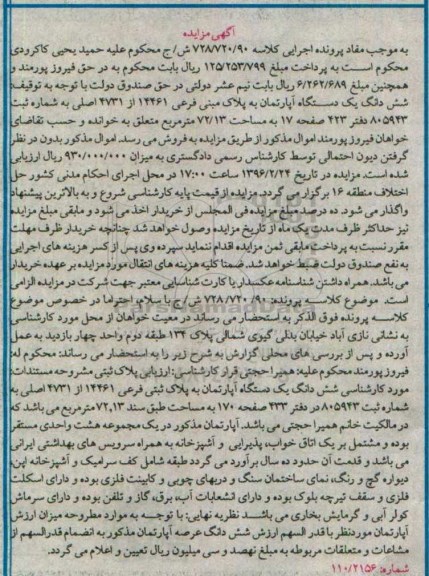 آگهی مزایده
به موجب مفاد پرونده اجرایی کلاسه ۷۲۸/۷۲۰/۹۰ ش/ ج محکوم علیه حمید یحیی کاکرودی
محکوم است به پرداخت مبلغ ۱۲۵/۲۵۳/۷۹۹ ریال بابت محکوم به در حق فیروز پورمند و
همچنین مبلغ ۶/۲۶۲/۶۸۹ ریال بابت نیم عشر دولتی در حق صندوق دولت با توجه به توقیف
شش دانگ یک دستگاه آپارتمان به پلاک مبنی فرعی ۱۴۴۶۱ از ۴۷۳۱ اصلی به شماره ثبت
۸۰۵۹۴۳ دفتر ۴۲۳ صفحه ۱۷ به مساحت ۷۲/۱۳ مترمربع متعلق به خوانده و حسب تقاضای
خواهان فیروز پورمند اموال مذکور از طریق مزایده به فروش می رسد. اموال مذکور بدون در نظر
گرفتن دیون احتمالی توسط کارشناس رسمی دادگستری به میزان ۹۳۰/۰۰۰/۰۰۰ ریال ارزیابی
شده است. مزایده در تاریخ ۱۳۹۶/۲/۲۴ ساعت ۱۷:۰۰ در محل اجرای احکام مدنی کشور حل
اختلاف منطقه ۱۶ برگزار می گردد. مزایده از قیمت پایه کارشناسی شروع و به بالاترین پیشنهاد
واگذار می شود. ده درصد مبلغ مزایده فی المجلس از خریدار اخذ می شود و مابقی مبلغ مزایده
نیز حداکثر ظرف مدت یک ماه از تاریخ مزایده وصول خواهد شد چنانچه خریدار ظرف مهلت
مقرر نسبت به پرداخت مابقی ثمن مزایده اقدام ننماید سپرده وی پس از کسر هزینه های اجرایی
به نفع صندوق دولت ضبط خواهد شد. ضمنا کلیه هزینه های انتقال مورد مزایده بر عهده خریدار
می باشد. همراه داشتن شناسنامه عکسدار یا کارت شناسایی معتبر جهت شرکت در مزایده الزامی
است. موضوع کلاسه پرونده: ۷۲۸/۷۲۰/۹۰ ش/ج با سلام، احتراما در خصوص موضوع
کلاسه پرونده فوق الذکر به استحضار می رساند در معیت خواهان از محل مورد کارشناسی
به نشانی نازی آباد خیابان بدلی گیوی شمالی پلاک ۱۳۴ طبقه دوم واحد چهار بازدید به عمل
آورده و پس از بررسی های محلی گزارش به شرح زیر را به استحضار می رساند: محکوم له:
فیروز پورمند محکوم علیه: همیرا حجتی قرار کارشناسی: ارزیابی پلاک ثبتی مشروحه مستندات:
مورد کارشناسی شش دانگ یک دستگاه آپارتمان به پلاک ثبتی فرعی ۱۴۴۶۱ از ۴۷۳۱ اصلی به
شماره ثبت ۸۰۵۹۴۳ در دفتر ۴۳۳ صفحه ۱۷۰ به مساحت طبق سند ۷۲,۱۳ مترمربع می باشد که
در مالکیت خانم همیرا حجتی می باشد. آپارتمان مذکور در یک مجموعه هشت واحدی مستقر
بوده و مشتمل بر یک اتاق خواب، پذیرایی و آشپزخانه به همراه سرویس های بهداشتی ایرانی
می باشد و قدمت آن حدود ده سال برآورد می گردد طبقه شامل کف سرامیک و آشپزخانه اپن،
دیواره گچ و رنگ، نمای ساختمان سنگ و دربهای چوبی و کابینت فلزی بوده و دارای اسکلت
فلزی و سقف تیرچه بلوک بوده و دارای انشعابات آب، برق، گاز و تلفن بوده و دارای سرمایش
کولر آبی و گرمایش بخاری می باشد نظریه نهایی: با توجه به موارد مطروحه میزان ارزش
آپارتمان موردنظر با قدر السهم ارزش شش دانگ عرصه آپارتمان مذکور به انضمام قدرالسهم از
مشاعات و متعلقات مربوطه به مبلغ نهصد و سی میلیون ریال تعیین و اعلام می گردد.
شماره: ۱۱۰/۲۱۵۶